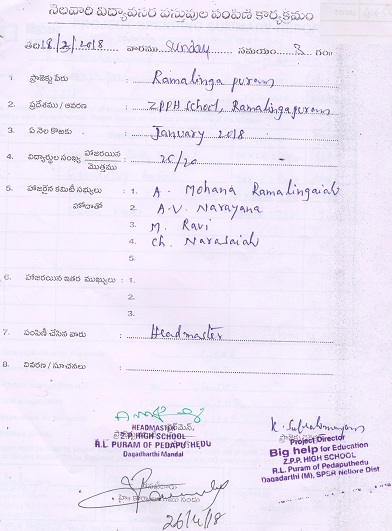 నెలవారి విద్యావసర వస్తువుల పంపిణి కార్యక్రమం
తేది 18/3/2018 వారము Sunday సమయం 8 గం॥
1. ప్రాజెక్టు పేరు : Ramalinga puram
2. ప్రదేశము / ఆవరణ : ZPPH School, Ramalingapuram
3. ఏ నెల కొఱకు : January 2018
4. విద్యార్థుల సంఖ్య హాజరయిన / మొత్తము : 20/20
5. హాజరైన కమిటీ సభ్యులు : 1. A. Mohana Ramalingaiah
హోదాతో 2. A.V. Narayana
3. M. Ravi
4. Ch. Narasaiah
5.
6. హాజరయిన ఇతర ముఖ్యులు : 1.
2.
3.
7. పంపిణీ చేసిన వారు : Headmaster
8. వివరణ / సూచనలు :
HEADMASTER
Z.P. HIGH SCHOOL
R.L PURAM OF PEDAPUTHEDU
Dagadharthi Mandal
K. Subrahmanyam
Project Director
Big help for Education
Z.P.P. HIGH SCHOOL
R.L. Puram of Pedaputhedu
Dagadarthi (M), SPSR Nellore Dist
26/4/18